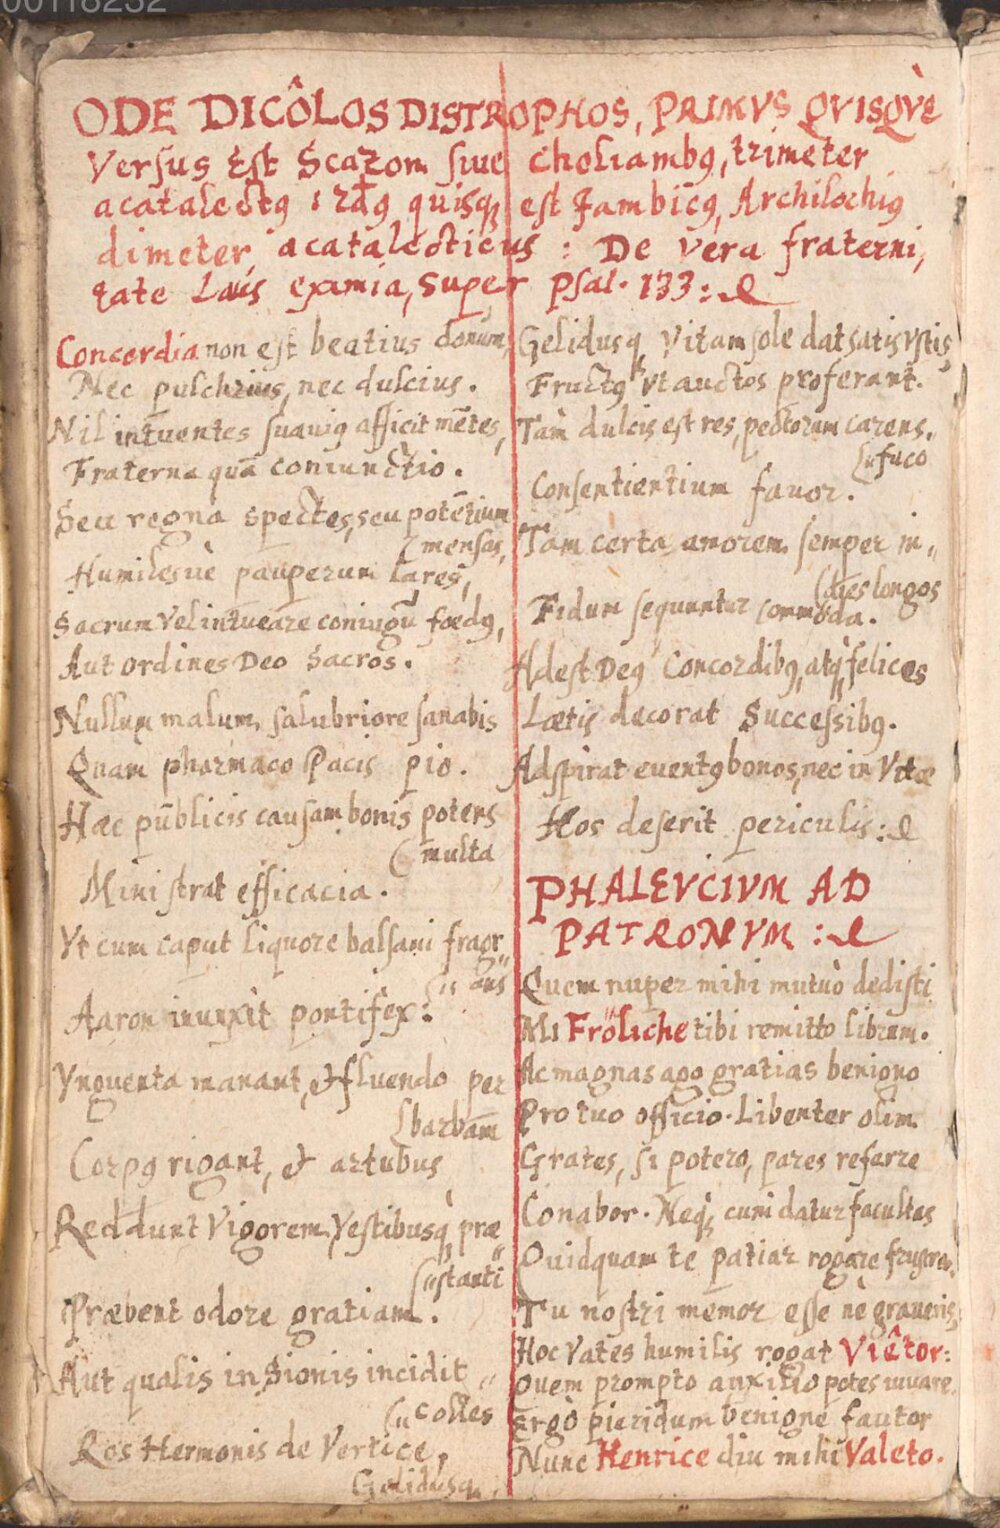 00118232
ODE DICÔLOS DISTROPHOS, PRIMVS QVISQVÈ
Versus Est Scazon siue Choliambꝰ, trimeter
acatalectꝰ
quisqꝫ est Jambicꝰ, Archilochiꝰ
dimeter, acatalecticus : De vera fraterni,
tate Laus eximia, super Psal. 133 :
Concordia non est beatius donum,
Nec pulchrius, nec dulcius.
Nil intuentes suauiꝰ afficit mētes,
Fraterna quā coniunctio.
Seu regna spectes, seu potētium
(mensas,
Humilesuè pauperum Lares,
Sacrum vel intueare coniugū fœdꝰ,
Aut ordines Deo Sacros.
Nullum malum, salubriore sanabis
Quam pharmaco Pacis pio.
Hæc pūblicis causam bonis potens
(multa
Ministrat efficacia.
Vt cum caput liquore balsami fragr„
(„ans
Aaron inunxit pontifex:
Vnguenta manant, & fluendo per
(barbam
Corpꝰ rigant, & artubus
Reddunt Vigorem, Vestibusqꝫ præ„
(„stanti
Præbent odore gratiam.
Aut qualis in Sionis incidit „
(„colles
Ros Hermonis de Vertice,
Gelidusqꝫ
Gelidusqꝫ Vitam sole dat satis vstis,
Fructꝰ vt auctos proferant.
Tàm dulcis est res, pectorum carens.
(„fuco
Consentientium fauor.
Tàm certa amorem semper in„
(dies longos
Fidum sequuntur commoda.
Adest Deꝰ Concordibꝰ, atqꝫ felices
Lætis decorat Successibꝰ.
Adspirat euentꝰ bonos, nec in Vitæ
Hos deserit periculis :
PHALEVCIVM AD
PATRONVM :
Quem nuper mihi mutuò dedisti
Mi Fröliche tibi remitto librum.
Ac magnas ago gratias benigno
Pro tuo officio. Libenter olim
Grates, si potero, pares referre
Conabor. Neqꝫ, cum datur facultas
Quidquam te patiar rogare
Tu nostri memor esse nè graueris,
Hoc Vates humilis rogat Viêtor:
Quem prompto auxilio potes iuuare.
Ergò pieridum benigne fautor
Nunc Henrice diu mihi Valeto.